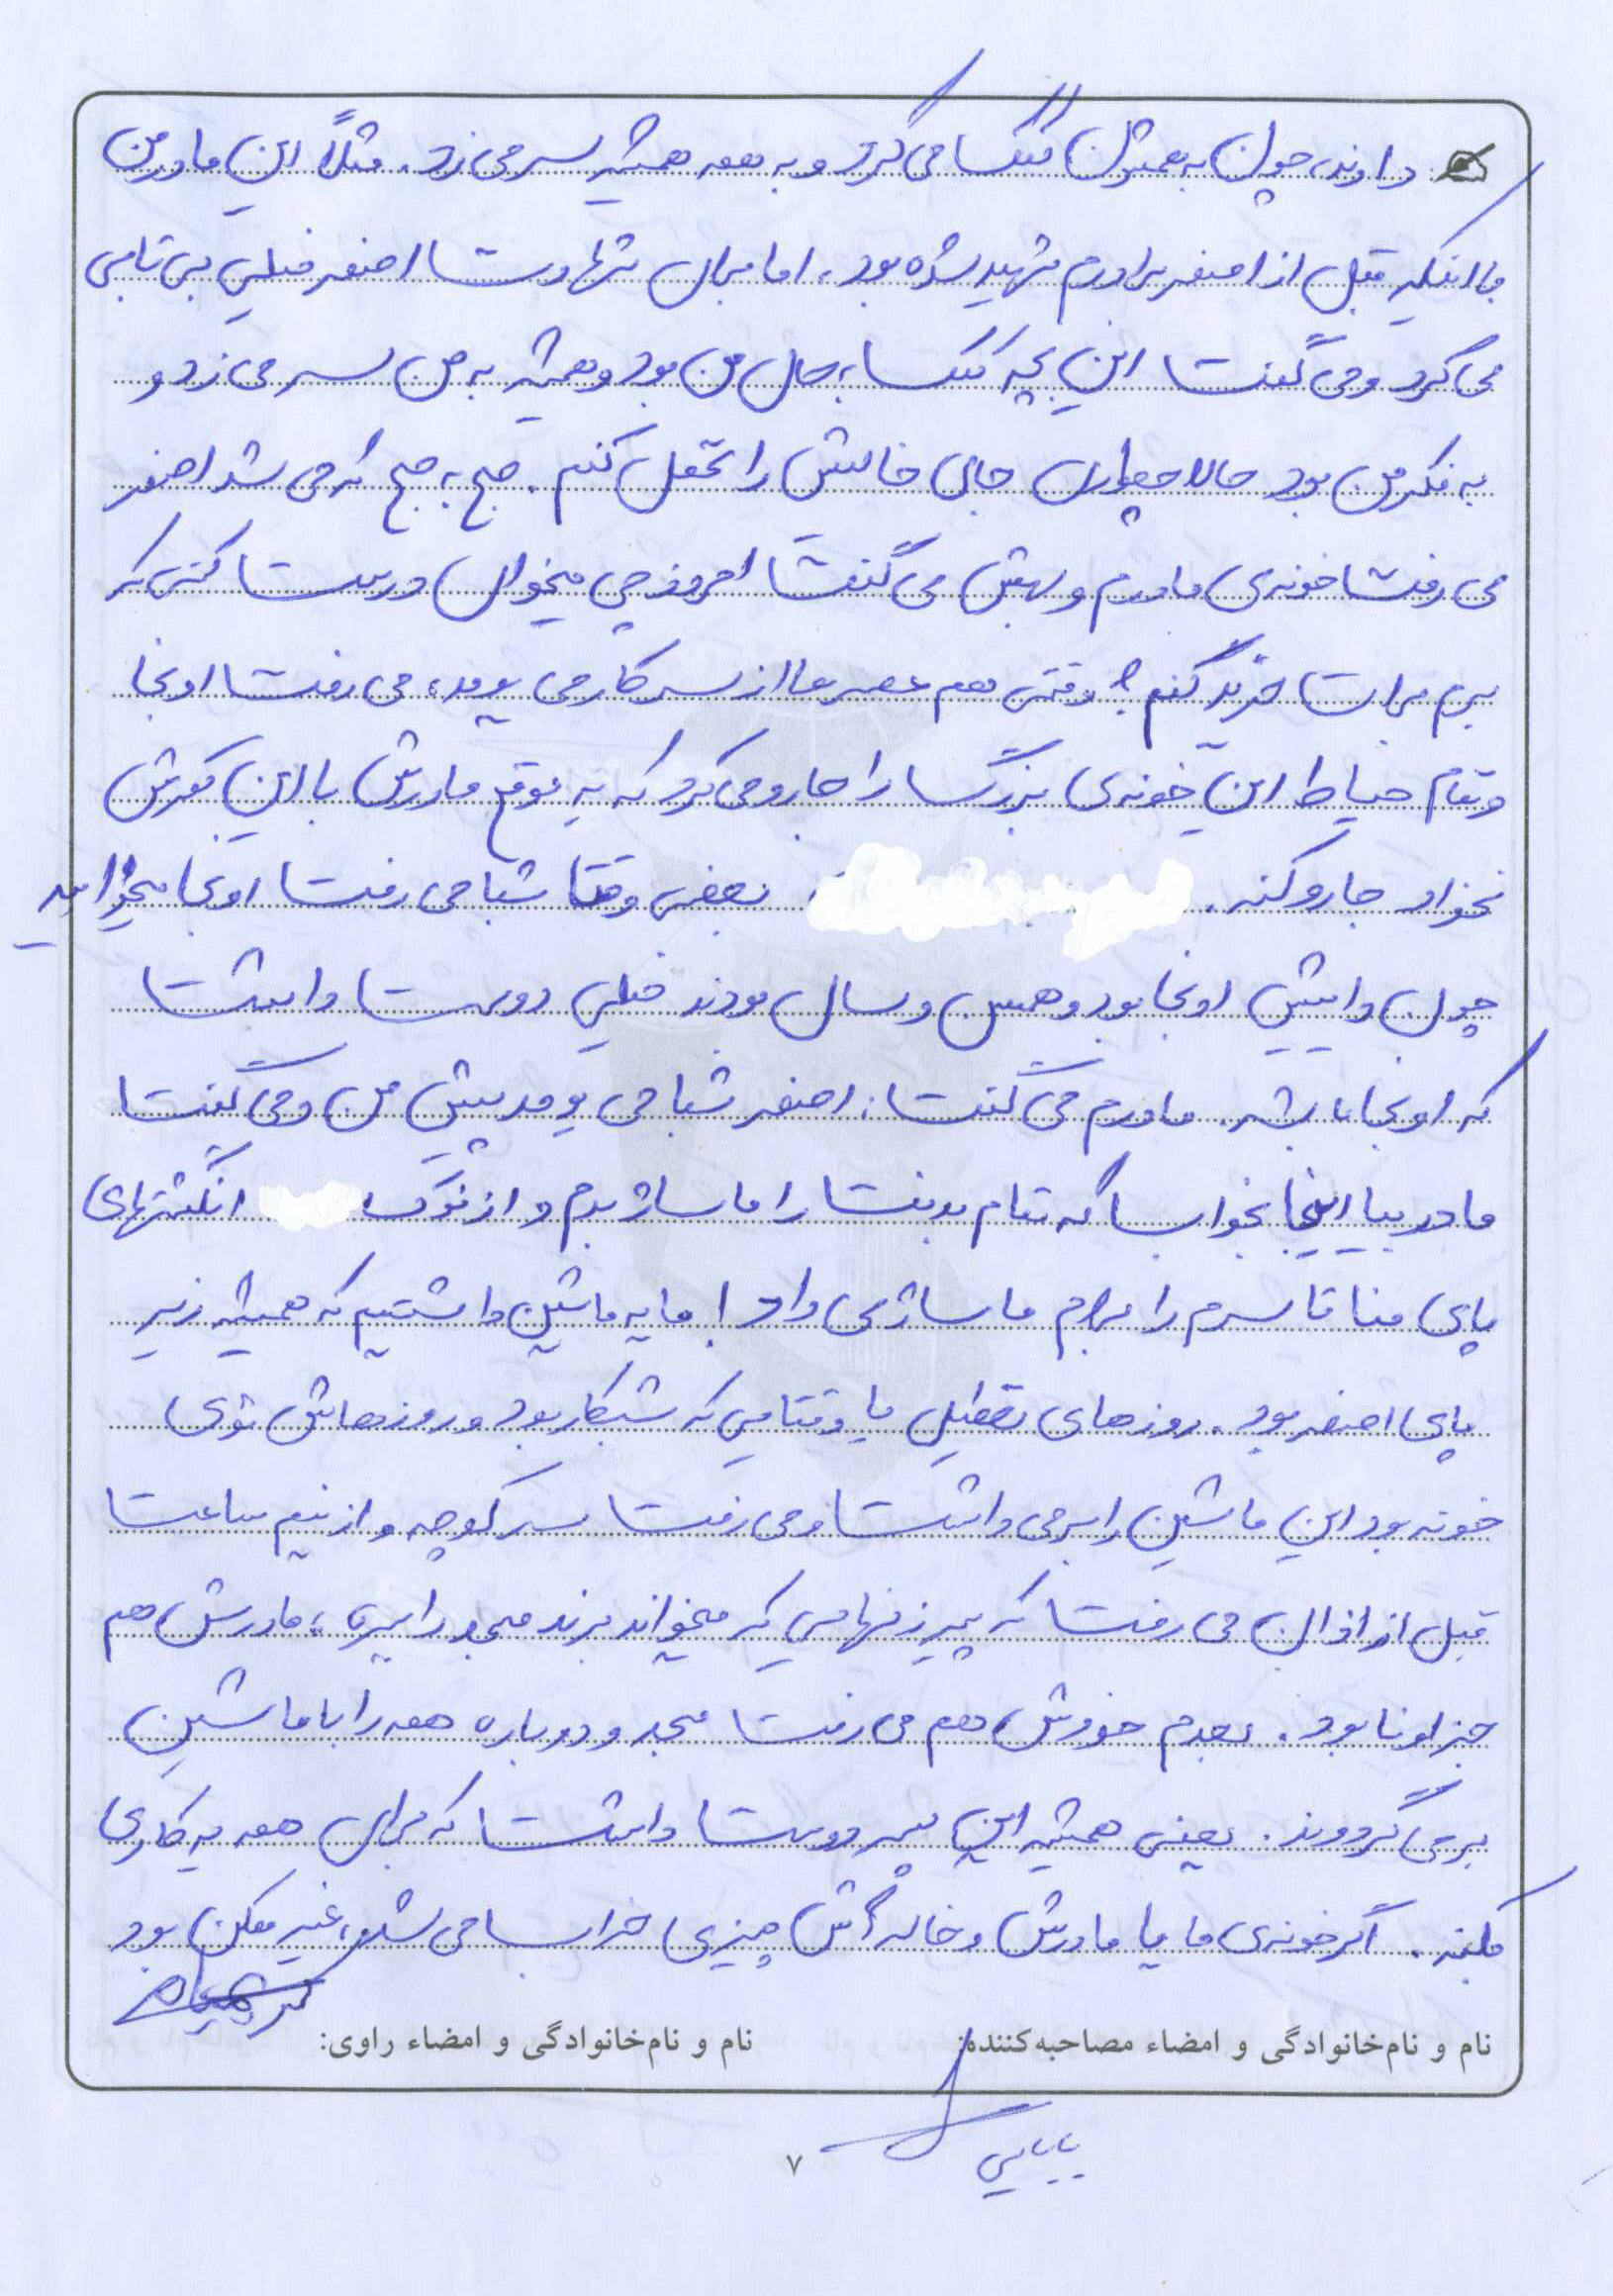 دارند، چون به همشون کمک می کرد و به همه همیشه سر می زد. مثلاً این مادر من
با اینکه قبل از اصغر برادرم شهید شده بود، اما برای شهادت اصغر خیلی بی تابی
می کرد و می گفت این بچه کمک به حال من بود و همیشه به من سر می زد و
به فکر من بود حالا چطوری جای خالیش را تحمل کنم. صبح به صبح که می شد اصغر
می رفت خونه ی مادرم و بهش می گفت امروز چی میخوای درست کنی که
برم برات خرید کنم؟ وقتی هم عصرها از سر کار می یومد، می رفت اونجا
و تمام حیاط این خونه ی بزرگ را جارو می کرد که یه موقع مادرش با این کمرش
نخواد جارو کنه. بعضی وقتا شبا می رفت اونجا میخوابید
چون داییش اونجا بود و همسن و سال بودند خیلی دوست داشت
که اونجا باشه. مادرم می گفت: اصغر شبا می یومد پیش من و می گفت
مادر بیا اینجا بخواب که تمام بدنت را ماساژ بدم و از نوک انگشتهای
پای منا تا سرم را برام ماساژ می داد! ما یه ماشین داشتیم که همیشه زیر
پای اصغر بود. روزهای تعطیل یا وقتایی که شبکار بود و روزهاش توی
خونه بود این ماشین را برمی داشت و می رفت سر کوچه و از نیم ساعت
قبل از اذان می رفت که پیرزنهایی که میخواند برند مسجد را ببره، مادرش هم
جز اونا بود. بعدم خودش هم می رفت مسجد و دوباره همه را با ماشین
برمی گردوند. یعنی همیشه این پسر دوست داشت که برای همه یه کاری
بکنه. اگر خونه ی ما یا مادرش و خاله اش چیزی خراب می شد، غیر ممکن بود
نام و نام‌خانوادگی و امضاء مصاحبه‌کننده: نام و نام‌خانوادگی و امضاء راوی:
بابایی
۷